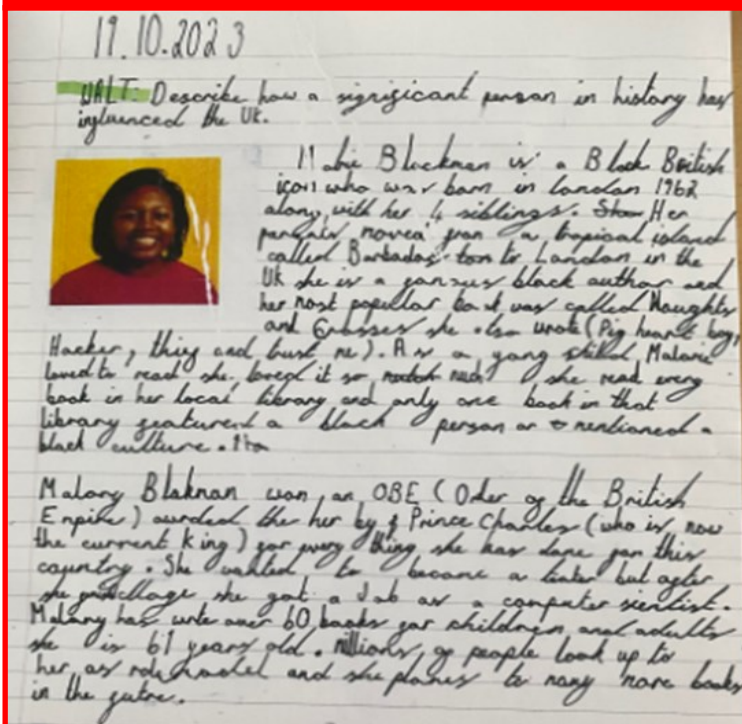 19.10.2023
WALT: Describe how a significant person in history has
influenced the UK.
Blackman is a Black British
icon who was born in London 1962
along with her 4 siblings. Her
parents moved from a tropical island
called Barbados to London in the
UK she is a famous black author and
her most popular book was called Noughts
and Crosses she also wrote (Pig heart boy,
Hacker, thing and trust me). As a yong Malorie
loved to read she loved it so much she read every
book in her local library and only one book in that
library featured a black person or mentioned a
black culture.
Malory Blakman won an OBE (Order of the British
Empire) awrded her by Prince Charles (who is now
the current King) for every thing she has done for this
country. She wanted to become a but after
she got a Job as a computer sientist.
Malory has write over 60 books for children and adults
she is 61 years old. millions of people look up to
her as role model and she planes to many more books
in the futre.